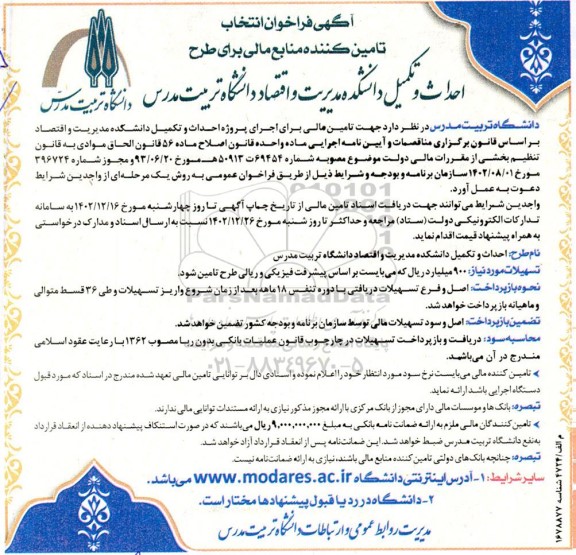 آگهی فراخوان انتخاب
تامین کننده منابع مالی برای طرح
احداث و تکمیل دانشکده مدیریت و اقتصاد دانشگاه تربیت مدرس
دانشگاه تربیت مدرس
دانشگاه تربیت مدرس در نظر دارد جهت تامین مالی برای اجرای پروژه احداث و تکمیل دانشکده مدیریت و اقتصاد
بر اساس قانون برگزاری مناقصات و آیین نامه اجرایی ماده واحده قانون اصلاح ماده ۵۶ قانون الحاق موادی به قانون
تنظیم بخشی از مقررات مالی دولت موضوع مصوبه شماره ۶۹۴۵۴ت۵۰۹۱۳هـ مورخ ۹۳/۰۶/۲۰ و مجوز شماره ۳۹۶۷۲۴
مورخ ۱۴۰۲/۰۸/۰۱ سازمان برنامه و بودجه و شرایط ذیل از طریق فراخوان عمومی به روش یک مرحله‌ای از واجدین شرایط
دعوت به عمل آورد.
واجدین شرایط می‌توانند جهت دریافت اسناد تامین مالی از تاریخ چاپ آگهی تا روز چهارشنبه مورخ ۱۴۰۲/۱۲/۱۶ به سامانه
تدارکات الکترونیکی دولت (ستاد) مراجعه و حداکثر تا روز شنبه مورخ ۱۴۰۲/۱۲/۲۶ نسبت به ارسال اسناد و مدارک درخواستی
به همراه پیشنهاد قیمت اقدام نماید.
نام طرح: احداث و تکمیل دانشکده مدیریت و اقتصاد دانشگاه تربیت مدرس
تسهیلات مورد نیاز: ۹۰۰ میلیارد ریال که می‌بایست بر اساس پیشرفت فیزیکی و ریالی طرح تامین شود.
نحوه بازپرداخت: اصل و فرع تسهیلات دریافتی با دوره تنفس ۱۸ ماهه بعد از زمان شروع واریز تسهیلات و طی ۳۶ قسط متوالی
و ماهیانه بازپرداخت خواهد شد.
تضمین بازپرداخت: اصل و سود تسهیلات مالی توسط سازمان برنامه و بودجه کشور تضمین خواهد شد.
محاسبه سود: دریافت و بازپرداخت تسهیلات در چارچوب قانون عملیات بانکی بدون ربا مصوب ۱۳۶۲ با رعایت عقود اسلامی
مندرج در آن می‌باشد.
تامین کننده مالی می‌بایست نرخ سود مورد انتظار خود را اعلام نموده و اسنادی دال بر توانایی تامین مالی تعهد شده مندرج در اسناد که مورد قبول
دستگاه اجرایی باشد ارائه نماید.
تبصره: بانک ها و موسسات مالی دارای مجوز از بانک مرکزی با ارائه مجوز مذکور نیازی به ارائه مستندات توانایی مالی ندارند.
تامین کنندگان مالی ملزم به ارائه ضمانت نامه بانکی به مبلغ ۹,۰۰۰,۰۰۰,۰۰۰ ریال می‌باشند که در صورت استنکاف پیشنهاد دهنده از انعقاد قرارداد
به نفع دانشگاه تربیت مدرس ضبط خواهد شد. این ضمانت‌نامه پس از انعقاد قرارداد آزاد خواهد شد.
تبصره: چنانچه بانک‌های دولتی تامین کننده منابع مالی باشند، نیازی به ارائه ضمانت‌نامه نیست.
سایر شرایط: ۱- آدرس اینترنتی دانشگاه www.modares.ac.ir می‌باشد.
۲- دانشگاه در رد یا قبول پیشنهادها مختار است.
مدیریت روابط عمومی و ارتباطات دانشگاه تربیت مدرس
م الف/۴۷۳۴ شناسه ۱۶۷۸۸۷۷
ParsNamadData
۰۲۱-۸۸۳۴۹۶۷۰-۵